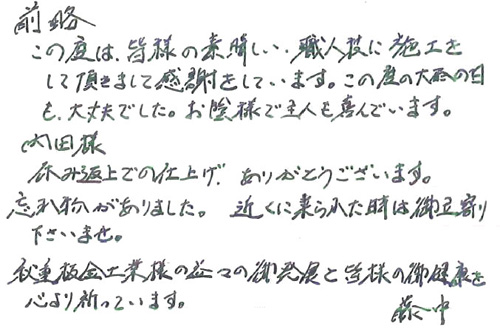 前略
この度は、皆様の素晴しい、職人技に施工を
して頂きまして感謝をしています。この度の大雨の日
も、大丈夫でした。お陰様で主人も喜んでいます。
内田様
休み返上での仕上げ、ありがとうございます。
忘れ物がありました。 近くに来られた時は御立寄り
下さいませ。
秋重板金工業様の益々の御発展と皆様の御健康を
心より祈っています。